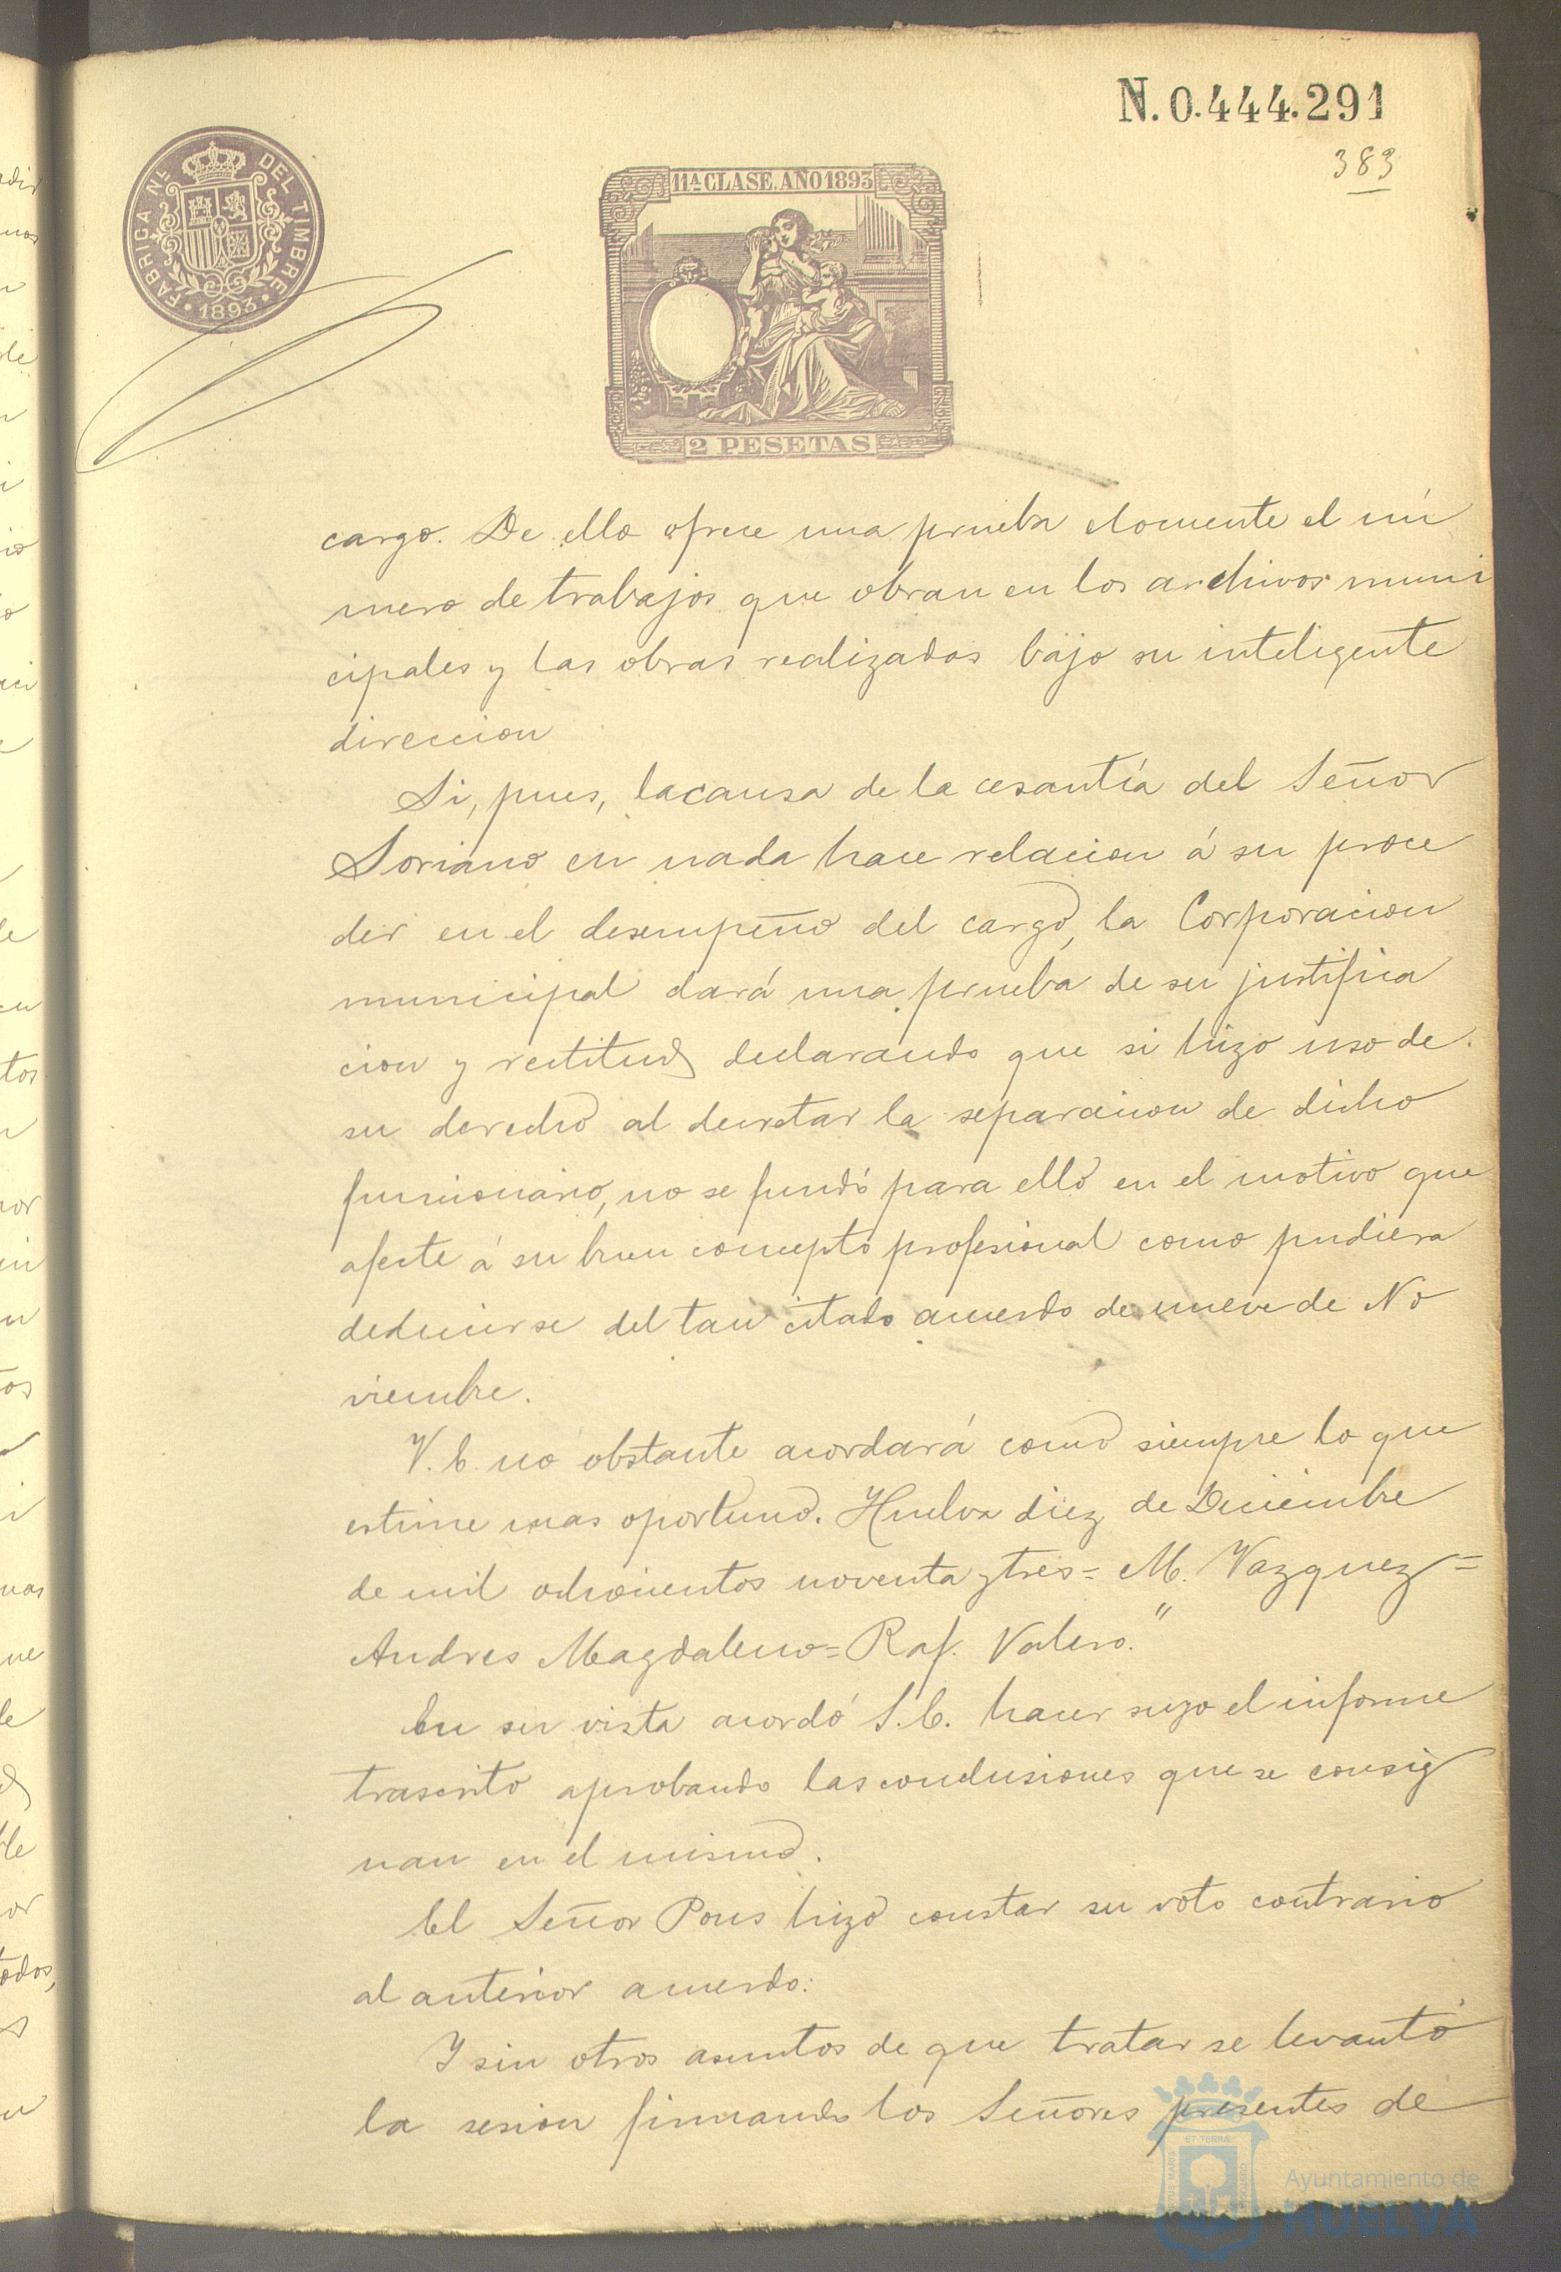 N. 0.444.291
383
FABRICA NL. DEL TIMBRE
1893
11ª CLASE. AÑO 1893
2 PESETAS
cargo. De ello ofrece una prueba elocuente el nú
mero de trabajos que obran en los archivos muni
cipales y las obras realizadas bajo su inteligente
direccion
Si, pues, la causa de la cesantía del Señor
Soriano en nada hace relacion á su proce
der en el desempeño del cargo, la Corporacion
municipal dará una prueba de su justifica
cion y rectitud declarando que si hizo uso de
su derecho al decretar la separacion de dicho
funcionario, no se fundó para ello en el motivo que
afecte á su buen concepto profesional como pudiera
deducirse del tan citado acuerdo de nueve de No
viembre.
V.E. no obstante acordará como siempre lo que
estime mas oportuno. Huelva diez de Diciembre
de mil ochocientos noventa y tres = M. Vazquez =
Andres Magdaleno = Raf. Valero."
En su vista acordó S.E. hacer suyo el informe
trascrito aprobando las conclusiones que se consig
nan en el mismo.
El Señor Pons hizo constar su voto contrario
al anterior acuerdo.
Y sin otros asuntos de que tratar se levantó
la sesion firmando los Señores presentes de
Ayuntamiento de
HUELVA